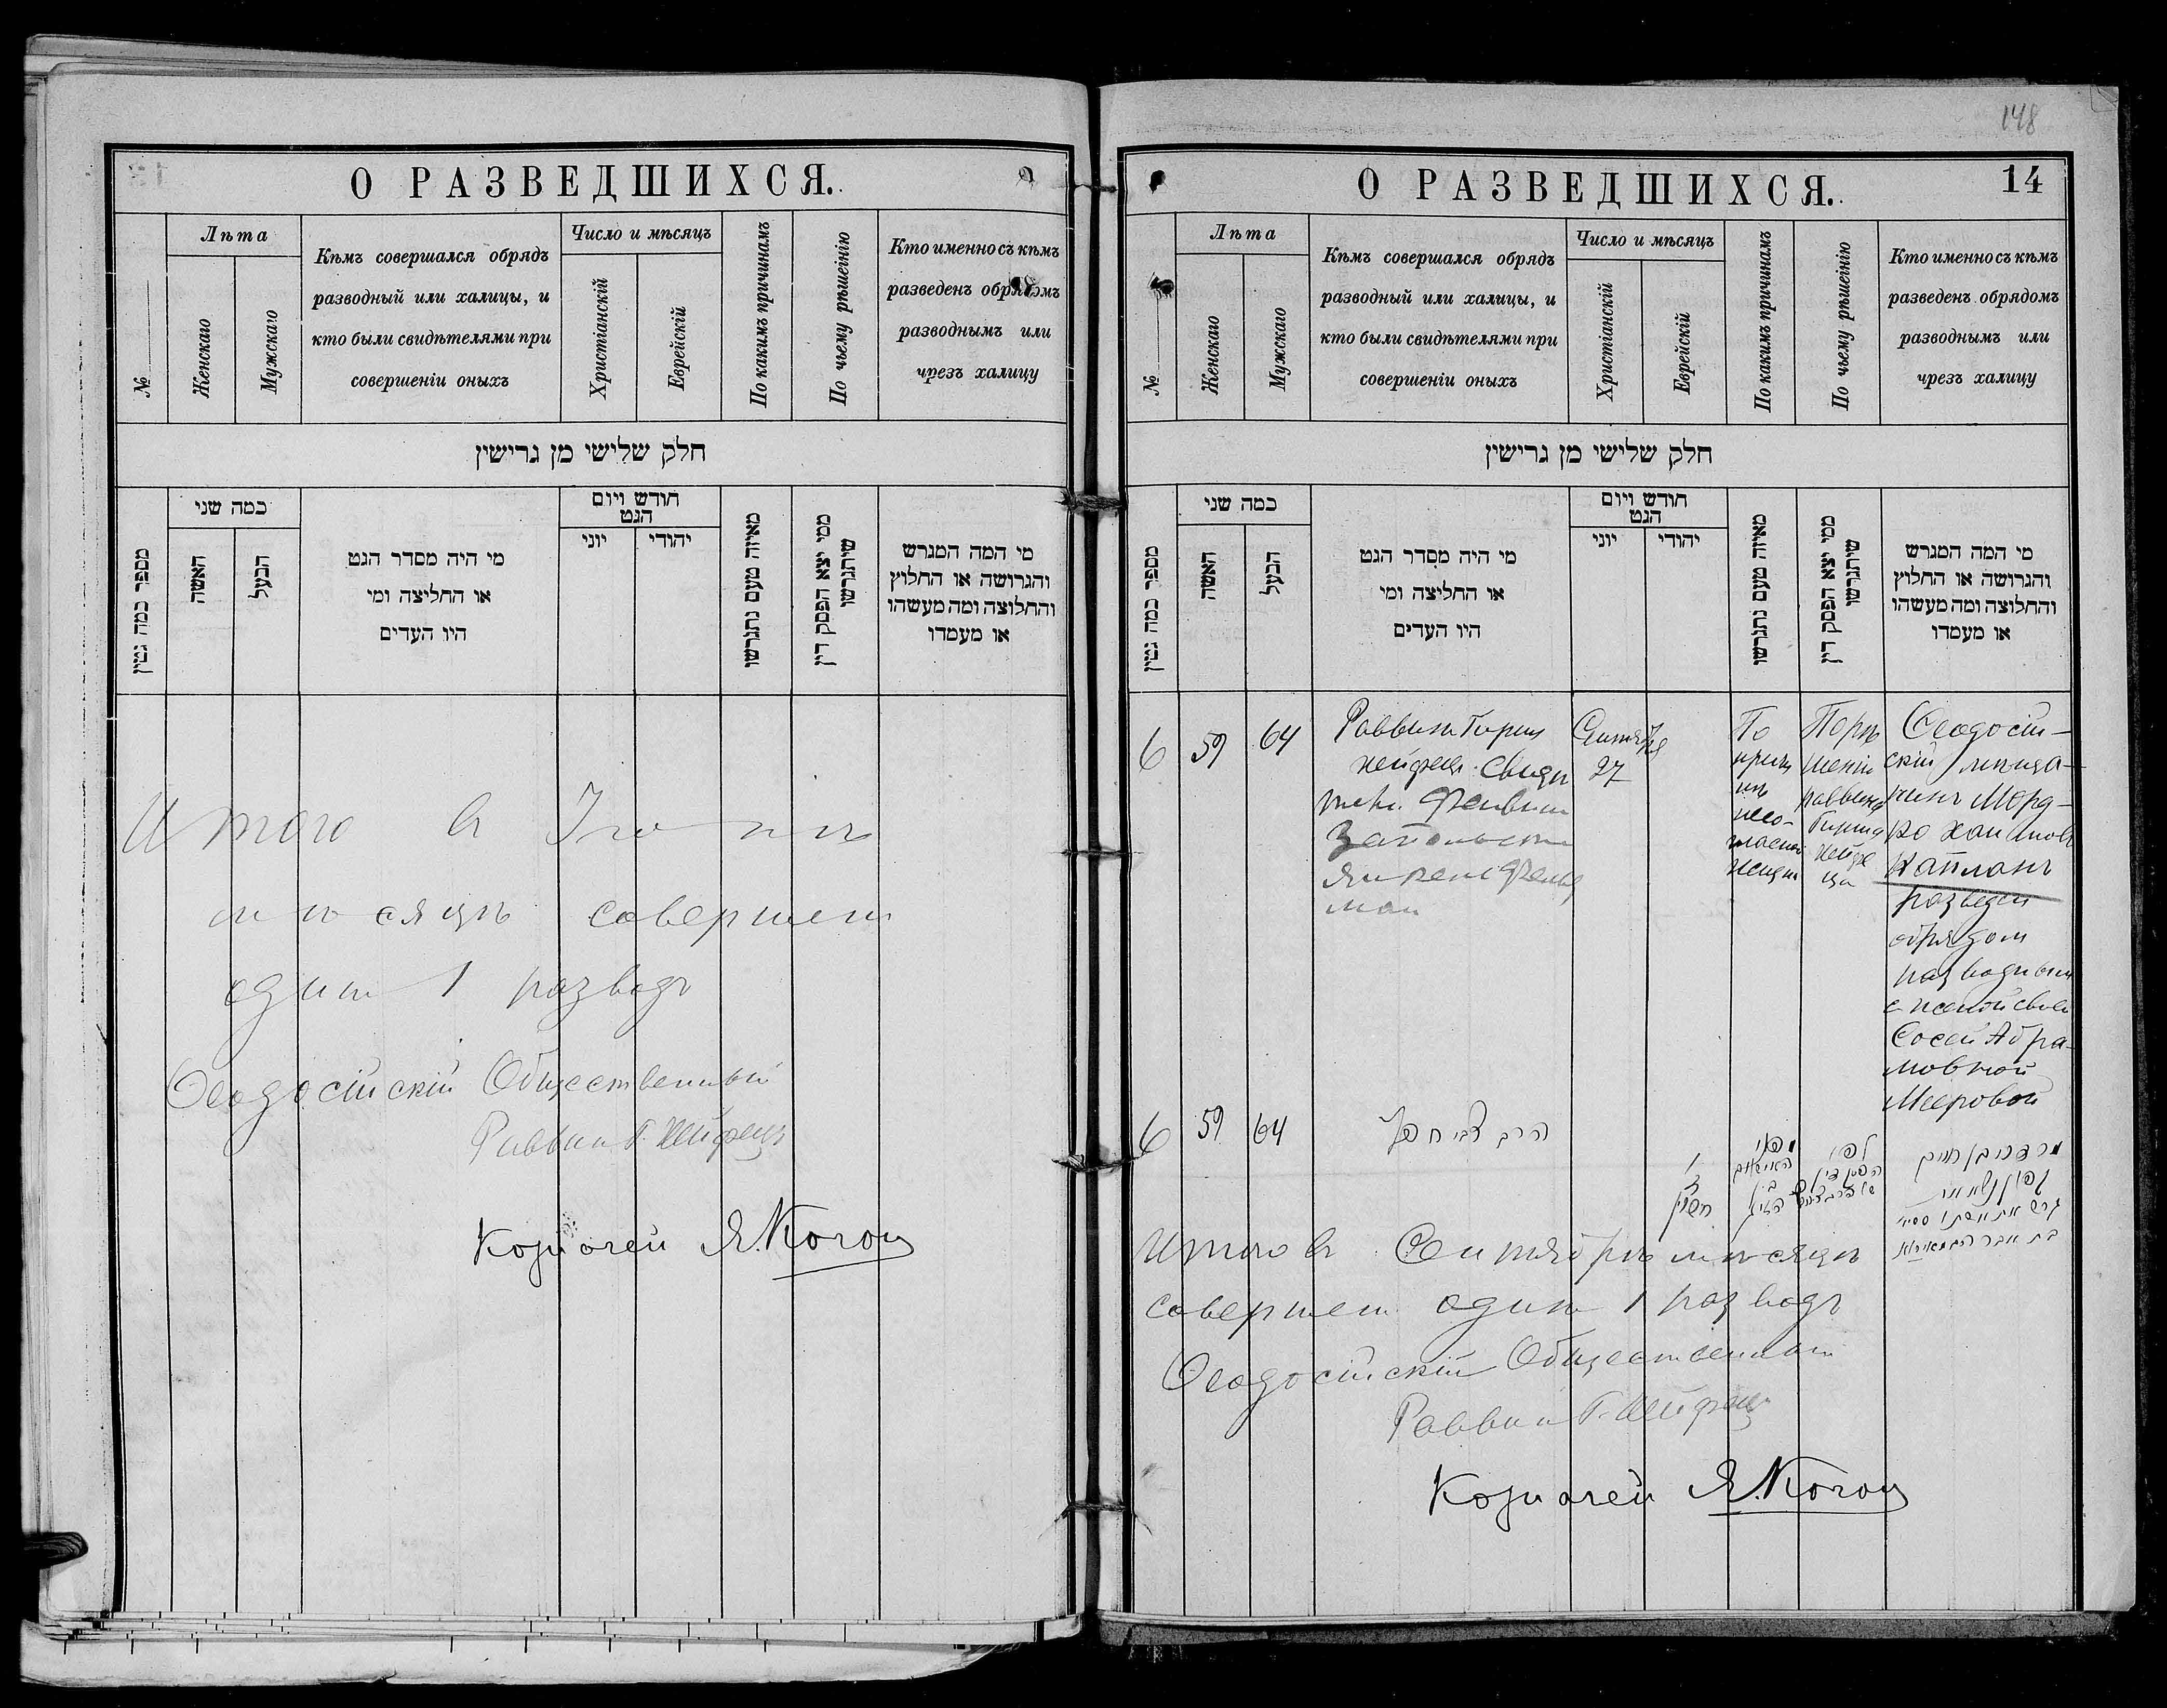 О РАЗВЕДШИХСЯ.
№
Лѣта
Женскаго
Мужскаго
Кѣмъ совершался обрядъ
разводный или халицы, и
кто были свидѣтелями при
совершеніи оныхъ
Число и мѣсяцъ
Христіанскій
Еврейскій
По какимъ причинамъ
По чьему рѣшенію
Кто именно съ кѣмъ
разведенъ обрядомъ
разводнымъ или
чрезъ халицу
חלק שלישי מן גרישין
מספר כמה גטין
כמה שני
האשה
הבעל
מי היה מסדר הגט
או החליצה ומי
היו העדים
חודש ויום
הגט
יוני
יהודי
מאיזה טעם נתגרשו
ממי יצא הפסק דין
שיתגרשו
מי המה המגרש
והגרושה או החלוץ
והחלוצה ומה מעשהו
או מעמדו
Итого в Іюнѣ
мѣсяцѣ совершен
один 1 разводъ
Ѳеодосійскій Общественный
Раввин Г. Хейфецъ
Казначей Я. Коган
148
О РАЗВЕДШИХСЯ.
14
№
Лѣта
Женскаго
Мужскаго
Кѣмъ совершался обрядъ
разводный или халицы, и
кто были свидѣтелями при
совершеніи оныхъ
Число и мѣсяцъ
Христіанскій
Еврейскій
По какимъ причинамъ
По чьему рѣшенію
Кто именно съ кѣмъ
разведенъ обрядомъ
разводнымъ или
чрезъ халицу
חלק שלישי מן גרישין
מספר כמה גטין
כמה שני
האשה
הבעל
מי היה מסדר הגט
או החליצה ומי
היו העדים
חודש ויום
הגט
יוני
יהודי
מאיזה טעם נתגרשו
ממי יצא הפסק דין
שיתגרשו
מי המה המגרש
והגרושה או החלוץ
והחלוצה ומה מעשהו
או מעמדו
6
59
64
Раввин Гирш
Хейфец. Свидѣ
тели
Сентября
27
По
причи
нѣ
несо-
гласной
жизни
По рѣ
шенію
раввина
Гирша
Хейфе
ца
Ѳеодосій-
скій мѣща-
нинъ Морд-
ко Хаимов
Капланъ
разведен
обрядом
разводным
с женой своей
Сосей Абра-
мовной
Мееровой
6
59
64
הרב צבי חפץ
לפי
הפסק דין
מרדכי בן חיים
גרש את אשתו
Итого в Сентябрѣ мѣсяцѣ
совершен один 1 разводъ
Ѳеодосійскій Общественный
Раввин Г. Хейфец
Казначей Я. Коган